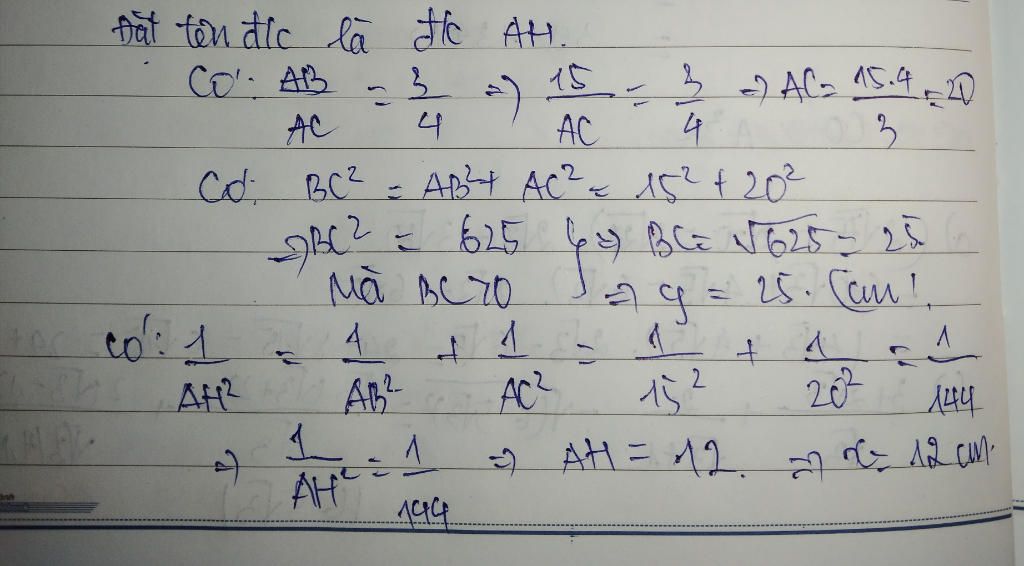 Đặt tên đ/c là đ/c AH.
Có: AB/AC = 3/4 => 15/AC = 3/4 => AC = 15.4/3 = 20
Có: BC² = AB² + AC² = 15² + 20²
=> BC² = 625 } => BC = √625 = 25
Mà BC > 0 => y = 25. (cm).
Có: 1/AH² = 1/AB² + 1/AC² = 1/15² + 1/20² = 1/144
=> 1/AH² = 1/144 => AH = 12. => x = 12 cm.